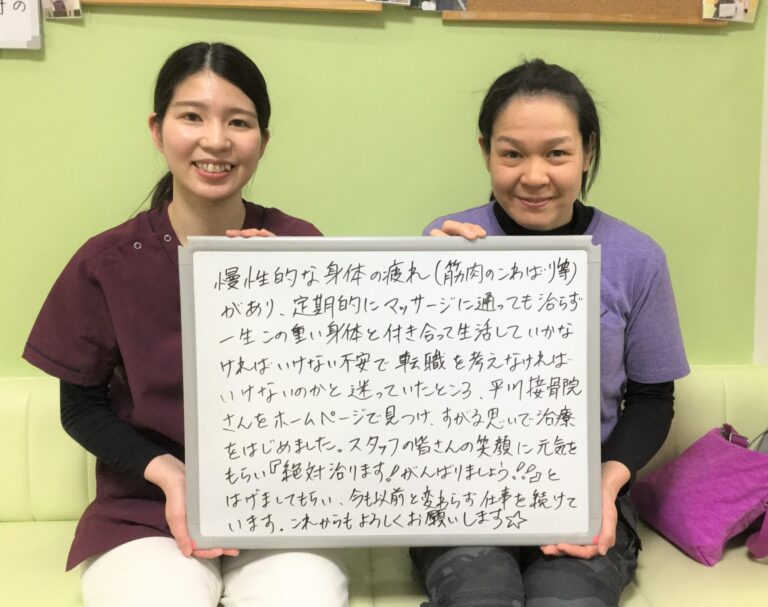 けの
慢性的な身体の疲れ(筋肉のこわばり等)
があり、定期的にマッサージに通っても治らず
一生この重い身体と付き合って生活していかな
ければいけない不安で転職を考えなければ
いけないのかと迷っていたところ、平川接骨院
さんをホームページで見つけ、すがる思いで治療
をはじめました。スタッフの皆さんの笑顔に元気を
もらい『絶対治ります!がんばりましょう!!』と
はげましてもらい、今も以前と変わらず仕事を続けて
います。これからもよろしくお願いします☆